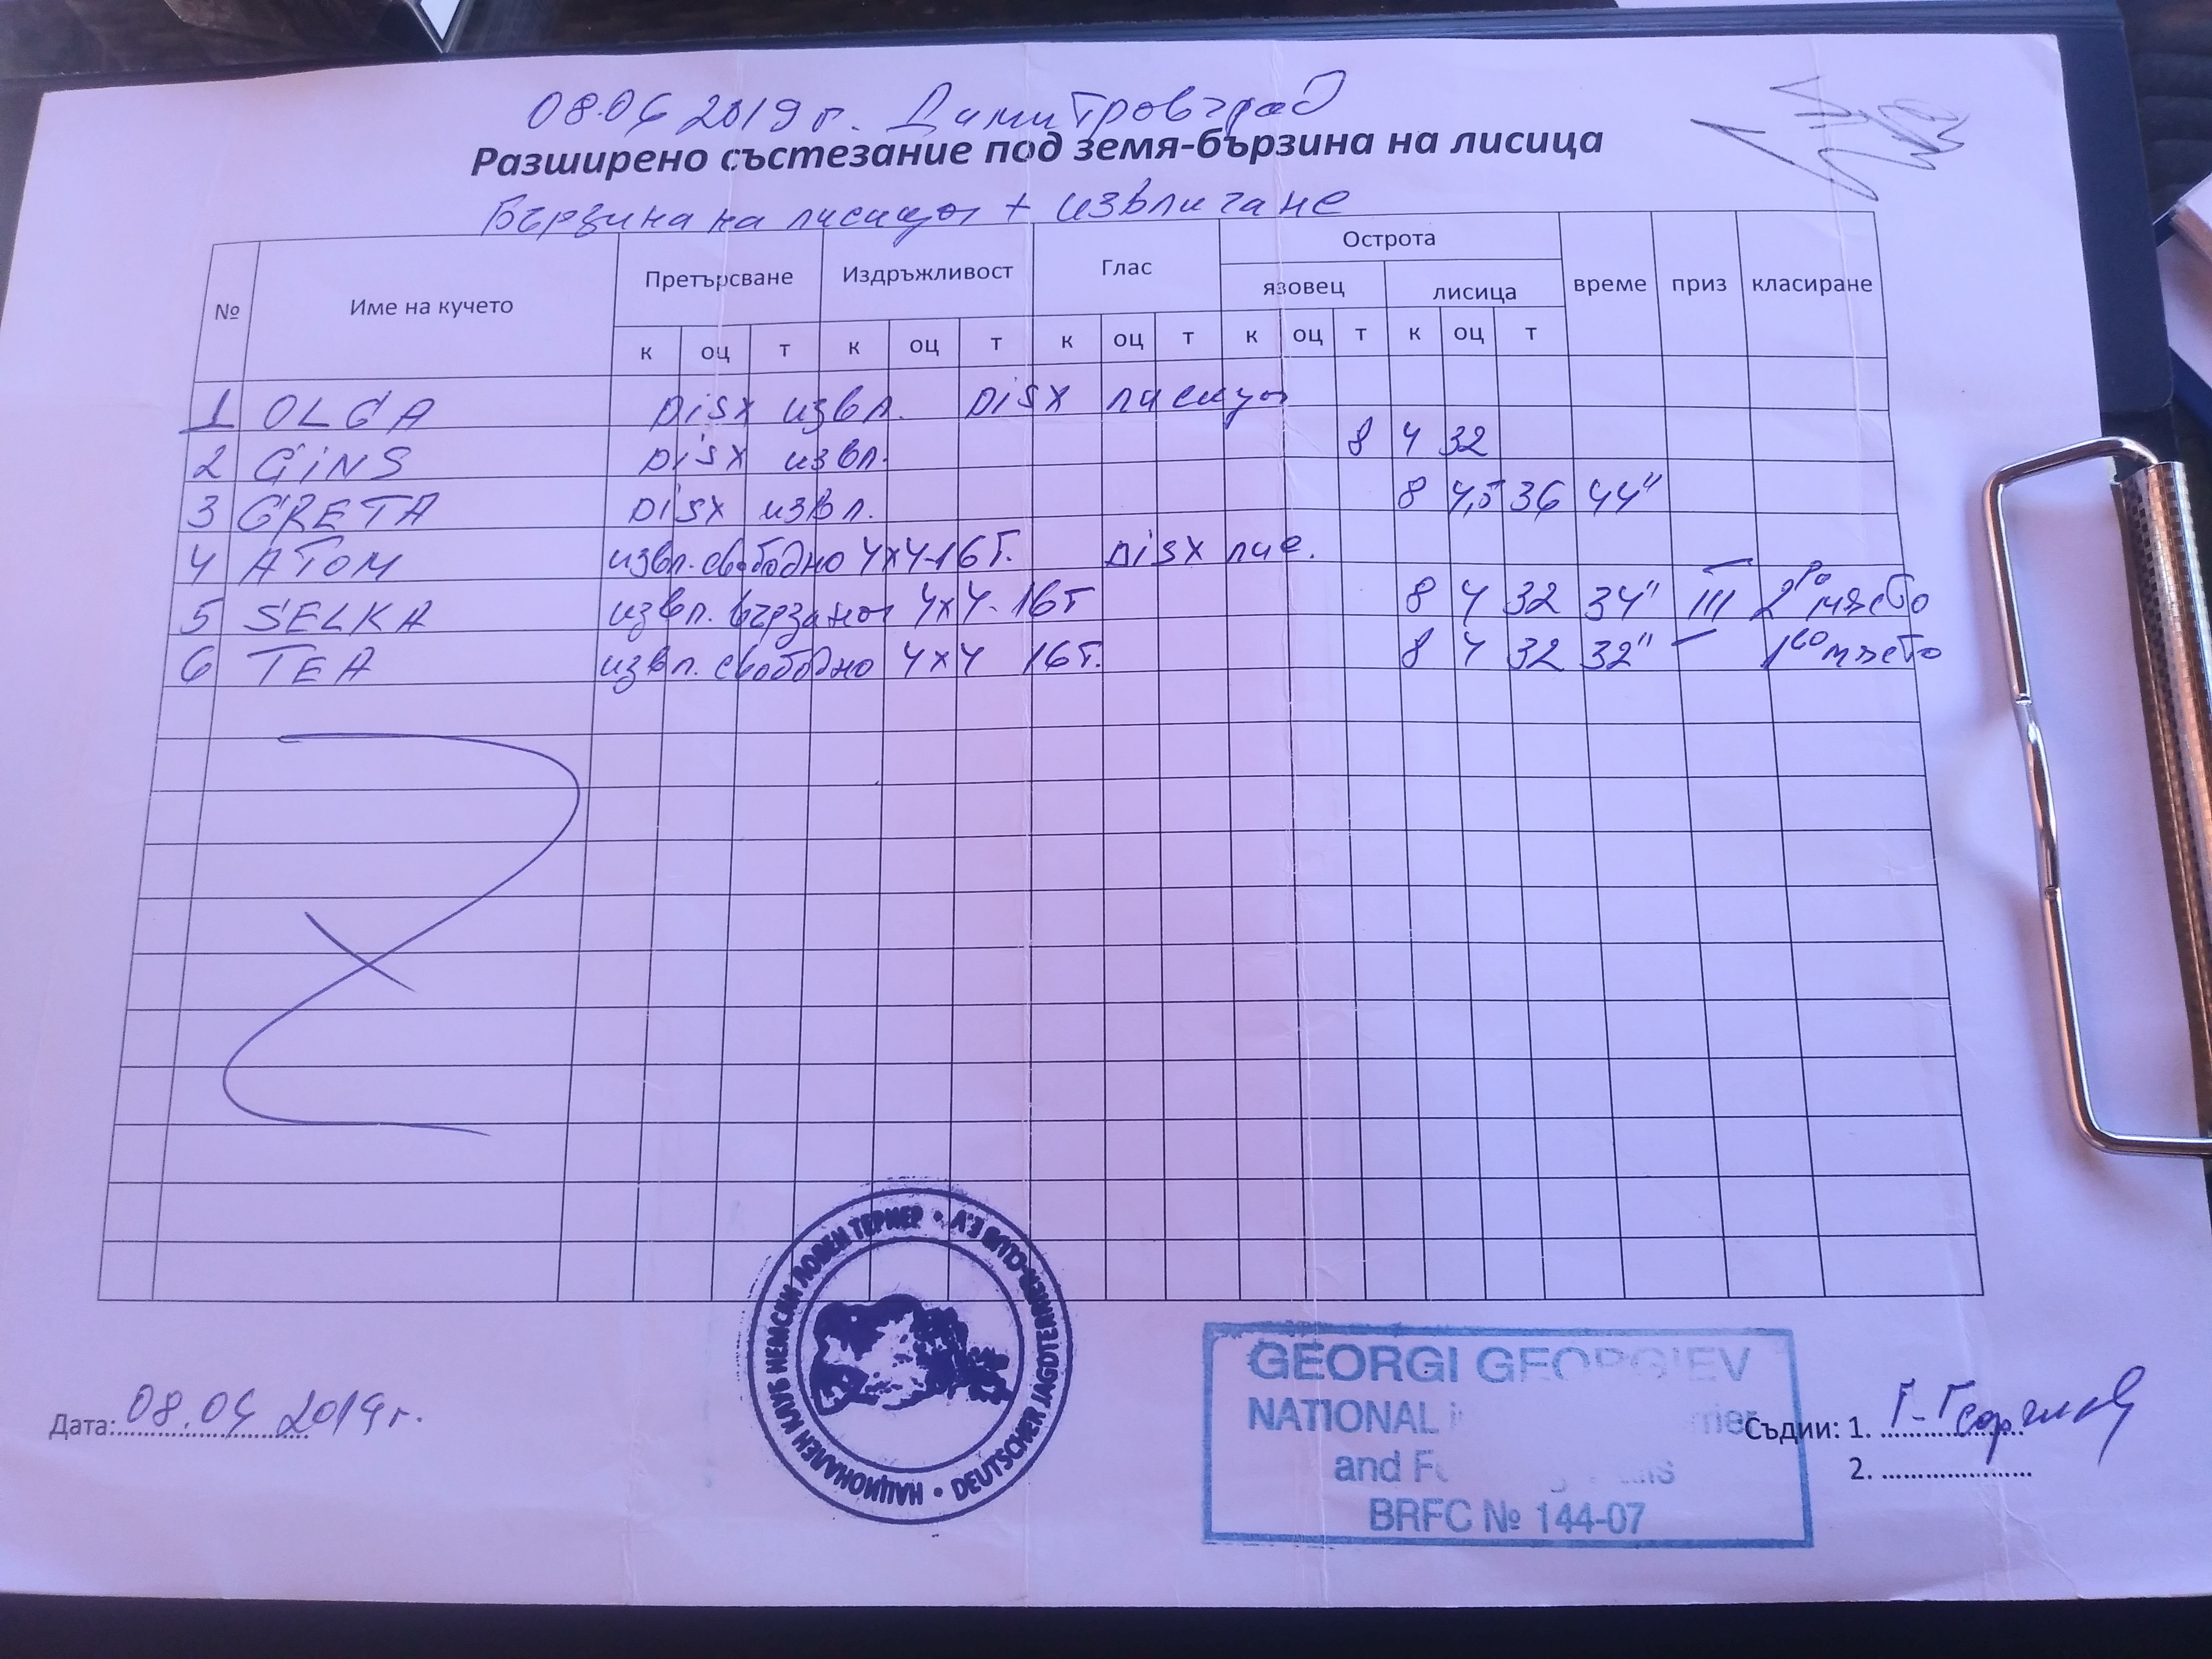 08.04 2019 г. Димитровград
Разширено състезание под земя-бързина на лисица
Бързина на лисица + извличане
№ Име на кучето Претърсване Издръжливост Глас Острота време приз класиране
язовец лисица
к оц т к оц т к оц т к оц т к оц т
1 OLGA DISX извл. DISX лисица
2 GINS DISX извл. 8 4 32
3 GRETA DISX извл. 8 4,5 36 44"
4 ATOM извл. свободно 4x4-16т. DISX лис.
5 SELKA извл. вързано 4x4-16т 8 4 32 34" III 2ро място
6 TEA извл. свободно 4x4 16т. 8 4 32 32" 1во място
НАЦИОНАЛЕН КЛУБ НЕМСКИ ЛОВЕН ТЕРИЕР •
DEUTSCHER JAGDTERRIER-CLUB E.V •
GEORGI GEORGIEV
NATIONAL
and
BRFC № 144-07
Дата: 08.04 2019г.
Съдии: 1. Г. Георгиев
2.